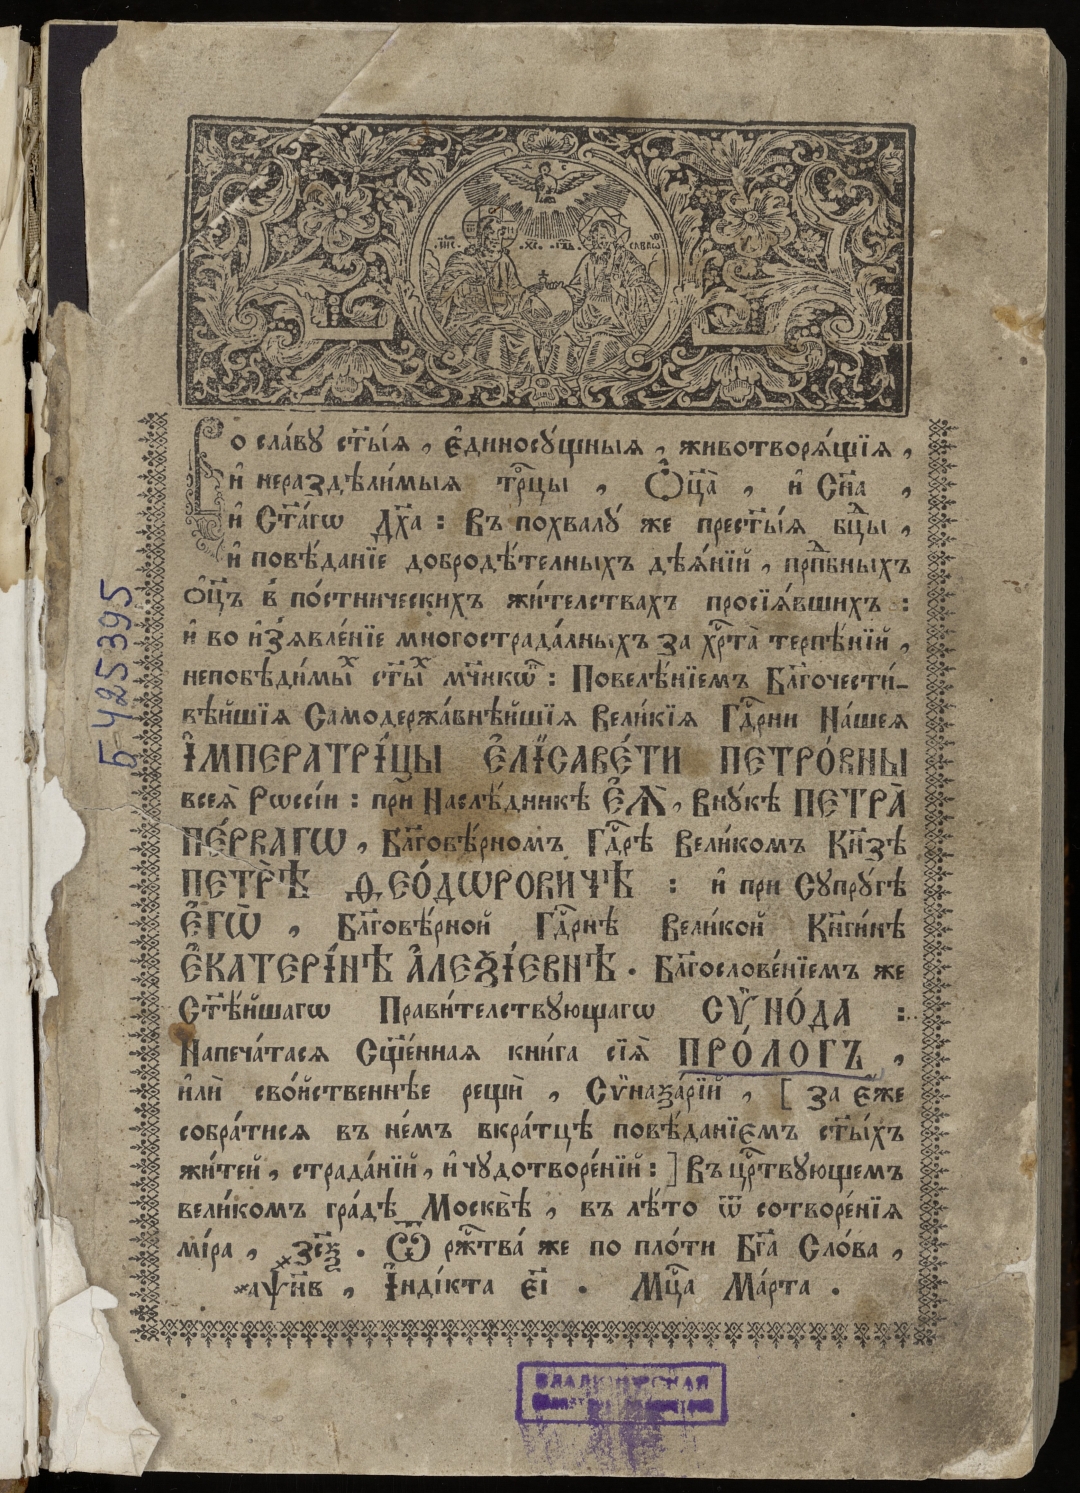 І҆И҃С ХС ГД҇Ь САВАѠ
Во сла́ву ст҃ы́ѧ , є҆диносꙋ́щныѧ , животворѧ́щїѧ ,
и҆ нераздѣли́мыѧ трⷪ҇цы , Ѻ҆ц҃а̀ , и҆ Сн҃а ,
и҆ Ст҃а́гѡ Дх҃а : Въ похвалꙋ́ же прест҃ы́ѧ бцⷣы ,
и҆ повѣ́данїе добродѣ́телныхъ дѣѧ́нїй , прпⷣбныхъ
ѻ҆ц҃ъ в́ по́стническихъ жи́телствахъ просїѧ́вшихъ :
и҆ во и҆з̾ѧвле́нїе многострада́лныхъ за хрⷭ҇та̀ терпѣ́нїй ,
непобѣди́мыⷯ ст҃ы́ⷯ мч҃нкѡⷡ : Повелѣ́нїемъ Бл҃гочести́-
вѣйшїѧ Самодержа́внѣйшїѧ Вели́кїѧ Гдⷭ҇рни На́шеѧ
І҆МПЕРАТРІ́ЦЫ Є҆ЛІСАВЕ́ТИ ПЕТРО́ВНЫ
всеѧ̀ Рѡссі́и : при Наслѣ́дникѣ Є҆Ѧ̀ , Внꙋ́кѣ ПЕТРА̀
ПЕ́РВАГѠ , Бл҃говѣ́рномъ Гдⷭ҇рѣ Вели́комъ Кн҃зѣ
ПЕТРѢ̀ Ѳ҆ЕО́ДѠРОВИЧѢ : и҆ при Сꙋпрꙋ́гѣ
Є҆ГѠ̀ , Бл҃говѣ́рной Гдⷭ҇рнѣ Вели́кой Кн҃ги́нѣ
Є҆КАТЕРІ́НѢ А҆ЛЕѮІ́ЕВНѢ . Бл҃гослове́нїемъ же
Ст҃ѣ́йшагѡ Прави́телствꙋющагѡ СѴ҆НО́ДА :
Напеча́тасѧ Сщ҃е́ннаѧ кни́га сїѧ̀ ПРО́ЛОГЪ ,
и҆лѝ сво́йственнѣе рещѝ , Сѷназа́рїй , [ за є҆́же
собра́тисѧ въ не́мъ вкра́тцѣ повѣ́данїємъ ст҃ы́хъ
жи́тей , страда́нїй , и҆ чꙋдотворе́нїй : ] Въ црⷭ҇твꙋющемъ
вели́комъ гра́дѣ Москвѣ̀ , въ лѣ́то ѿ сотворе́нїѧ
мі́ра , ҂зс҃ѯ . Ѿ ржⷭ҇тва́ же по пло́ти Бг҃а Сло́ва ,
҂аѱн҃в , І҆нді́кта є҃і . Мцⷭ҇а Ма́рта .
Б-425395
ВЛАДИМИРСКАЯ